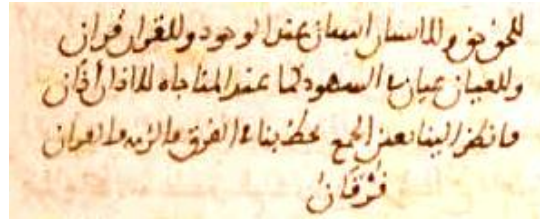 للحق حق وللانسان انسان عند الوجود وللقران قران
وللعيان عيان في الشهود كما عند المناجاه للاذان أذان
فانظر الينا بعين الجمع تحظ بنا في الفرق فالزمه فالقران
فُرْقَانُ